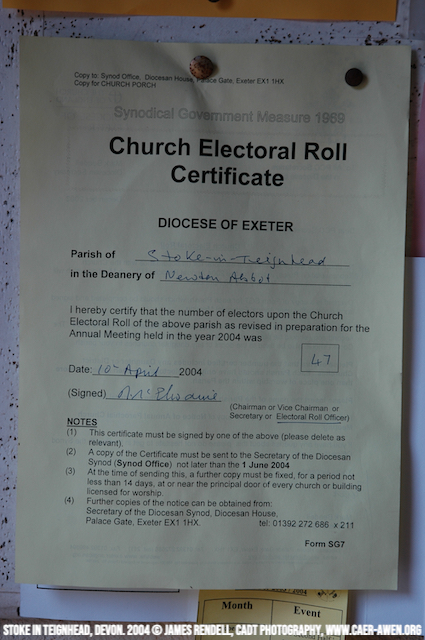 Copy to: Synod Office, Diocesan House, Palace Gate, Exeter EX1 1HX
Copy for CHURCH PORCH
Synodical Government Measure 1969
Church Electoral Roll
Certificate
DIOCESE OF EXETER
Parish of Stoke-in-Teignhead
in the Deanery of Newton Abbot
I hereby certify that the number of electors upon the Church
Electoral Roll of the above parish as revised in preparation for the
Annual Meeting held in the year 2004 was
47
Date: 10th April 2004
(Signed)
(Chairman or Vice Chairman or
Secretary or Electoral Roll Officer)
NOTES
(1) This certificate must be signed by one of the above (please delete as
relevant).
(2) A copy of the Certificate must be sent to the Secretary of the Diocesan
Synod (Synod Office) not later than the 1 June 2004
(3) At the time of sending this, a further copy must be fixed, for a period not
less than 14 days, at or near the principal door of every church or building
licensed for worship.
(4) Further copies of the notice can be obtained from:
Secretary of the Diocesan Synod, Diocesan House,
Palace Gate, Exeter EX1 1HX. tel: 01392 272 686 x 211
Form SG7
Month Event
STOKE IN TEIGNHEAD, DEVON. 2004 © JAMES RENDELL, CADT PHOTOGRAPHY, WWW.CAER-AWEN.ORG